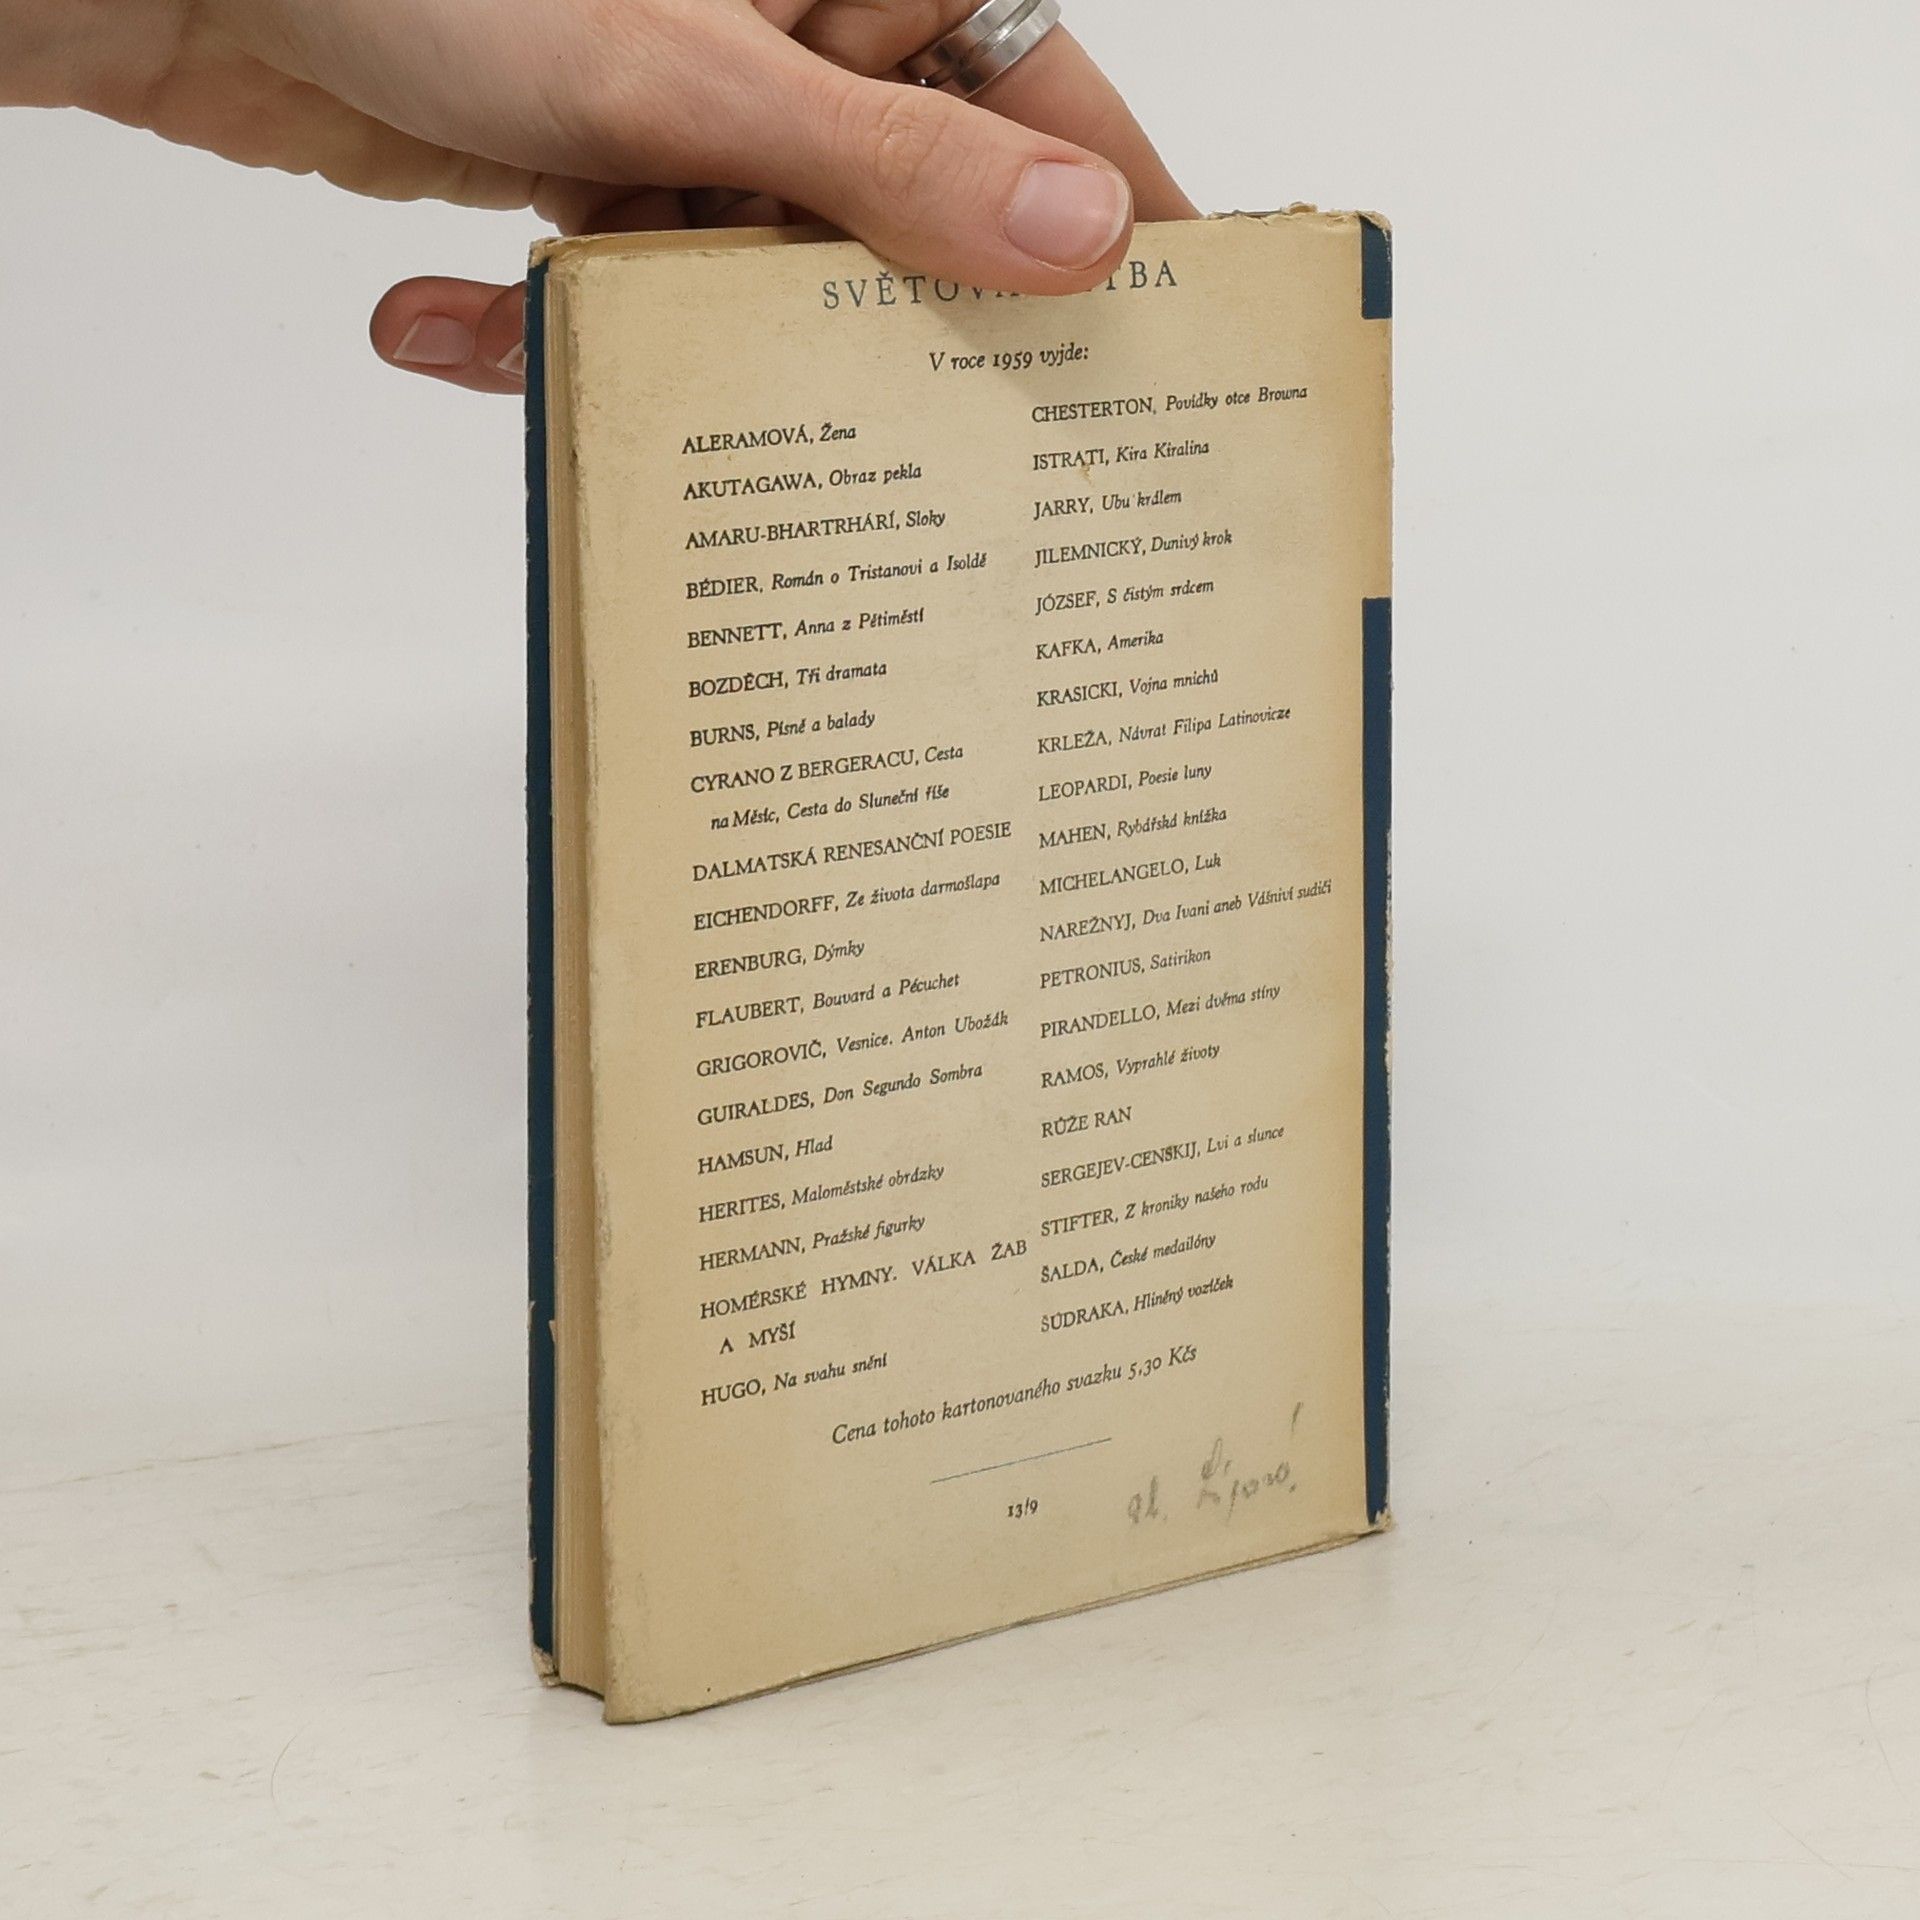 SVĚTOVÁ ČETBA
V roce 1959 vyjde:
ALERAMOVÁ, Žena
AKUTAGAWA, Obraz pekla
AMARU-BHARTRHÁRÍ, Sloky
BÉDIER, Román o Tristanovi a Isoldě
BENNETT, Anna z Pětiměstí
BOZDĚCH, Tři dramata
BURNS, Písně a balady
CYRANO Z BERGERACU, Cesta
na Měsíc, Cesta do Sluneční říše
DALMATSKÁ RENESANČNÍ POESIE
EICHENDORFF, Ze života darmošlapa
ERENBURG, Dýmky
FLAUBERT, Bouvard a Pécuchet
GRIGOROVIČ, Vesnice. Anton Ubožák
GUIRALDES, Don Segundo Sombra
HAMSUN, Hlad
HERITES, Maloměstské obrázky
HERMANN, Pražské figurky
HOMÉRSKÉ HYMNY. VÁLKA ŽAB
A MYŠÍ
HUGO, Na svahu snění
CHESTERTON, Povídky otce Browna
ISTRATI, Kira Kiralina
JARRY, Ubu králem
JILEMNICKÝ, Dunivý krok
JÓZSEF, S čistým srdcem
KAFKA, Amerika
KRASICKI, Vojna mnichů
KRLEŽA, Návrat Filipa Latinovicze
LEOPARDI, Poesie luny
MAHEN, Rybářská knížka
MICHELANGELO, Luk
NAREŽNYJ, Dva Ivani aneb Vášniví sudiči
PETRONIUS, Satirikon
PIRANDELLO, Mezi dvěma stíny
RAMOS, Vyprahlé životy
RŮŽE RAN
SERGEJEV-CENSKIJ, Lvi a slunce
STIFTER, Z kroniky našeho rodu
ŠALDA, České medailóny
ŠÚDRAKA, Hliněný vozíček
Cena tohoto kartonovaného svazku 5,30 Kčs
13/9